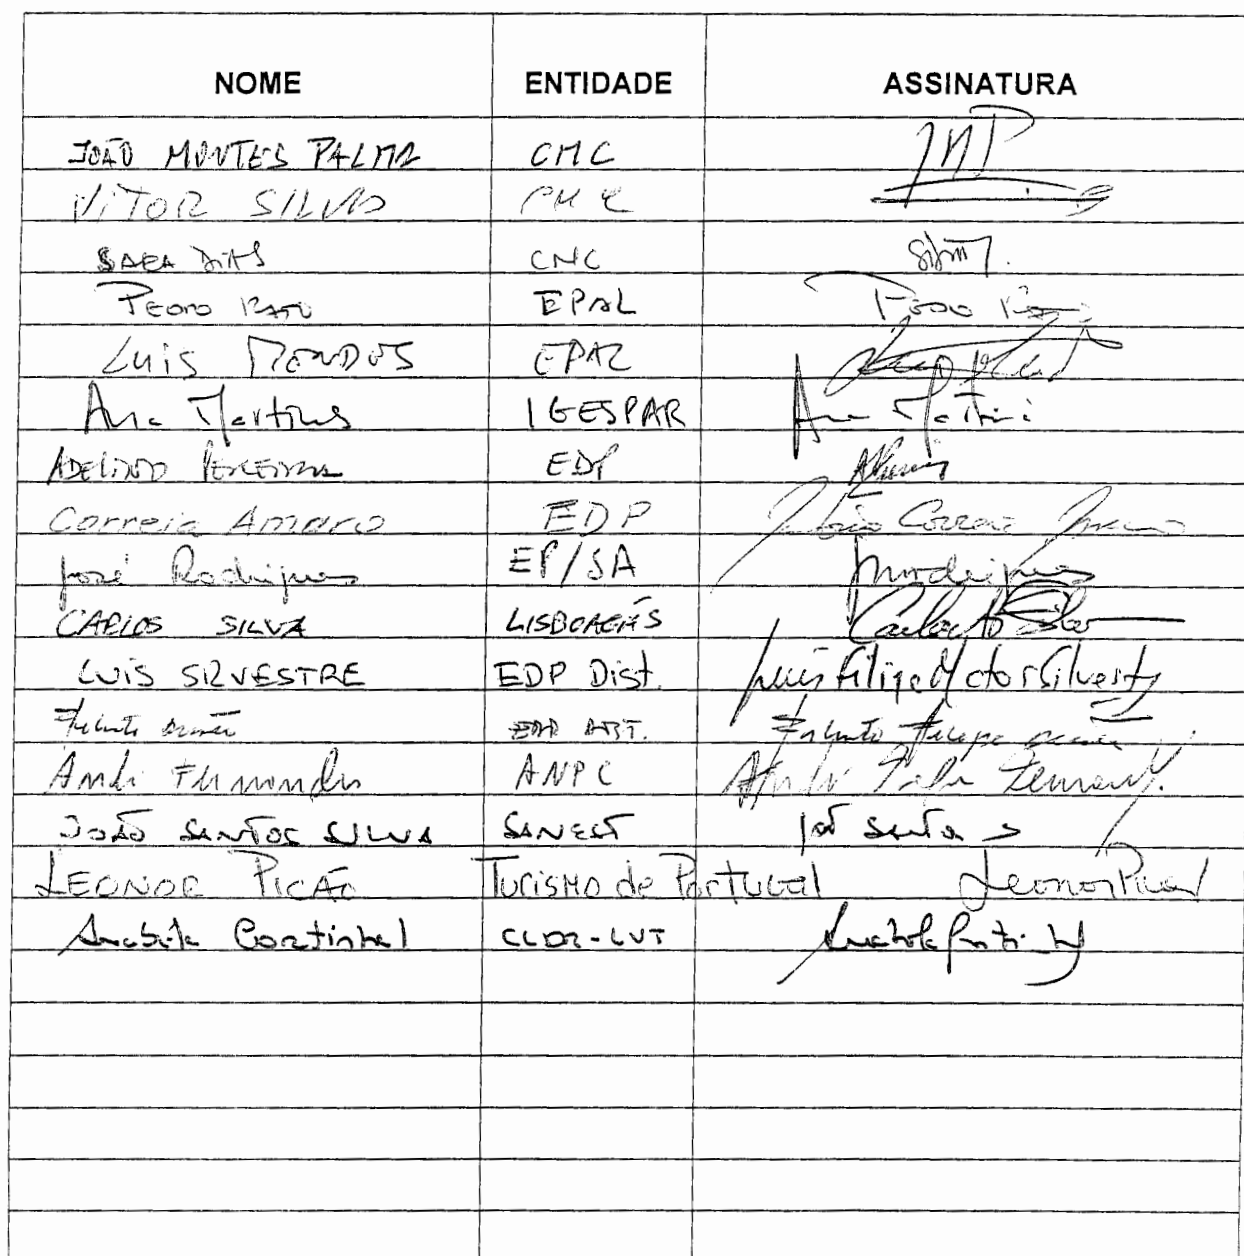 NOME ENTIDADE ASSINATURA
JOÃO MONTES PALMA CMC JMP
VITOR SILVA CMC
SARA DIAS CMC
PEDRO RATO EPAL Pedro
LUIS MENDES EPAL
Ana Martins IGESPAR Ana Martins
ADELINO PEREIRA EDP
Correia Amaro EDP Correia Amaro
José Rodrigues EP/SA JMRodrigues
CARLOS SILVA LISBOAGÁS Carlos Silva
LUÍS SILVESTRE EDP Dist. Luís Filipe Silvestre
EDP DIST. Filipe
André Fernandes ANPC André Fernandes
JOÃO SANTOS SILVA SANEST Santos
LEONOR PICÃO Turismo de Portugal Leonor Picão
Anabela Cortinhal CCDR-LVT Anabela Cortinhal